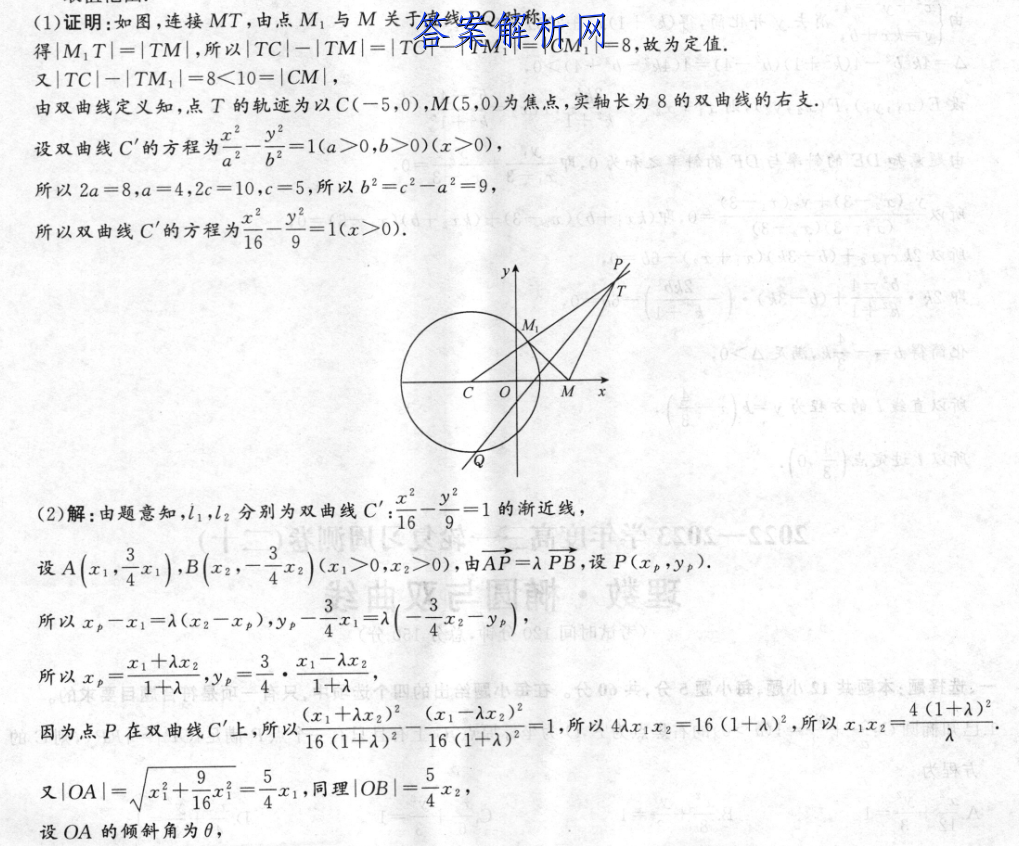 (1)证明:如图,连接 MT,由点 M₁ 与 M 关于直线 PQ 对称,
答案解析网
得|M₁T|=|TM|,所以|TC|-|TM|=|TC|-|TM₁|=|CM₁|=8,故为定值.
又|TC|-|TM₁|=8<10=|CM|,
由双曲线定义知,点 T 的轨迹为以 C(-5,0),M(5,0)为焦点,实轴长为 8 的双曲线的右支.
设双曲线 C′的方程为x²/a²-y²/b²=1(a>0,b>0)(x>0),
所以 2a=8,a=4,2c=10,c=5,所以 b²=c²-a²=9,
所以双曲线 C′的方程为x²/16-y²/9=1(x>0).
y
P
T
M₁
C
O
M
x
Q
(2)解:由题意知,l₁,l₂ 分别为双曲线 C′:x²/16-y²/9=1 的渐近线,
设 A(x₁,3/4x₁),B(x₂,-3/4x₂)(x₁>0,x₂>0),由AP→=λPB→,设 P(xₚ,yₚ).
所以 xₚ-x₁=λ(x₂-xₚ),yₚ-3/4x₁=λ(-3/4x₂-yₚ),
所以 xₚ=(x₁+λx₂)/(1+λ),yₚ=3/4·(x₁-λx₂)/(1+λ),
因为点 P 在双曲线 C′上,所以(x₁+λx₂)²/16(1+λ)²-(x₁-λx₂)²/16(1+λ)²=1,所以 4λx₁x₂=16(1+λ)²,所以 x₁x₂=4(1+λ)²/λ.
又|OA|=√(x₁²+9/16x₁²)=5/4x₁,同理|OB|=5/4x₂,
设 OA 的倾斜角为θ,